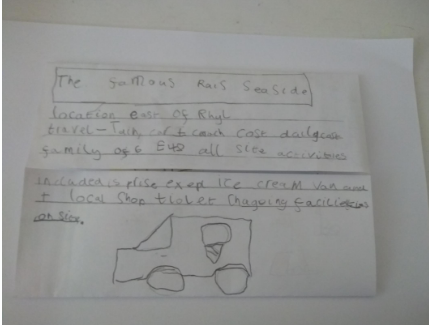 The famous Rais Seaside
location east of Rhyl
travel - Tain car coach cost
family of 6 £40 all site activities
included is prise exep ice cream van and
+ local Shop toilet facilities
on site.